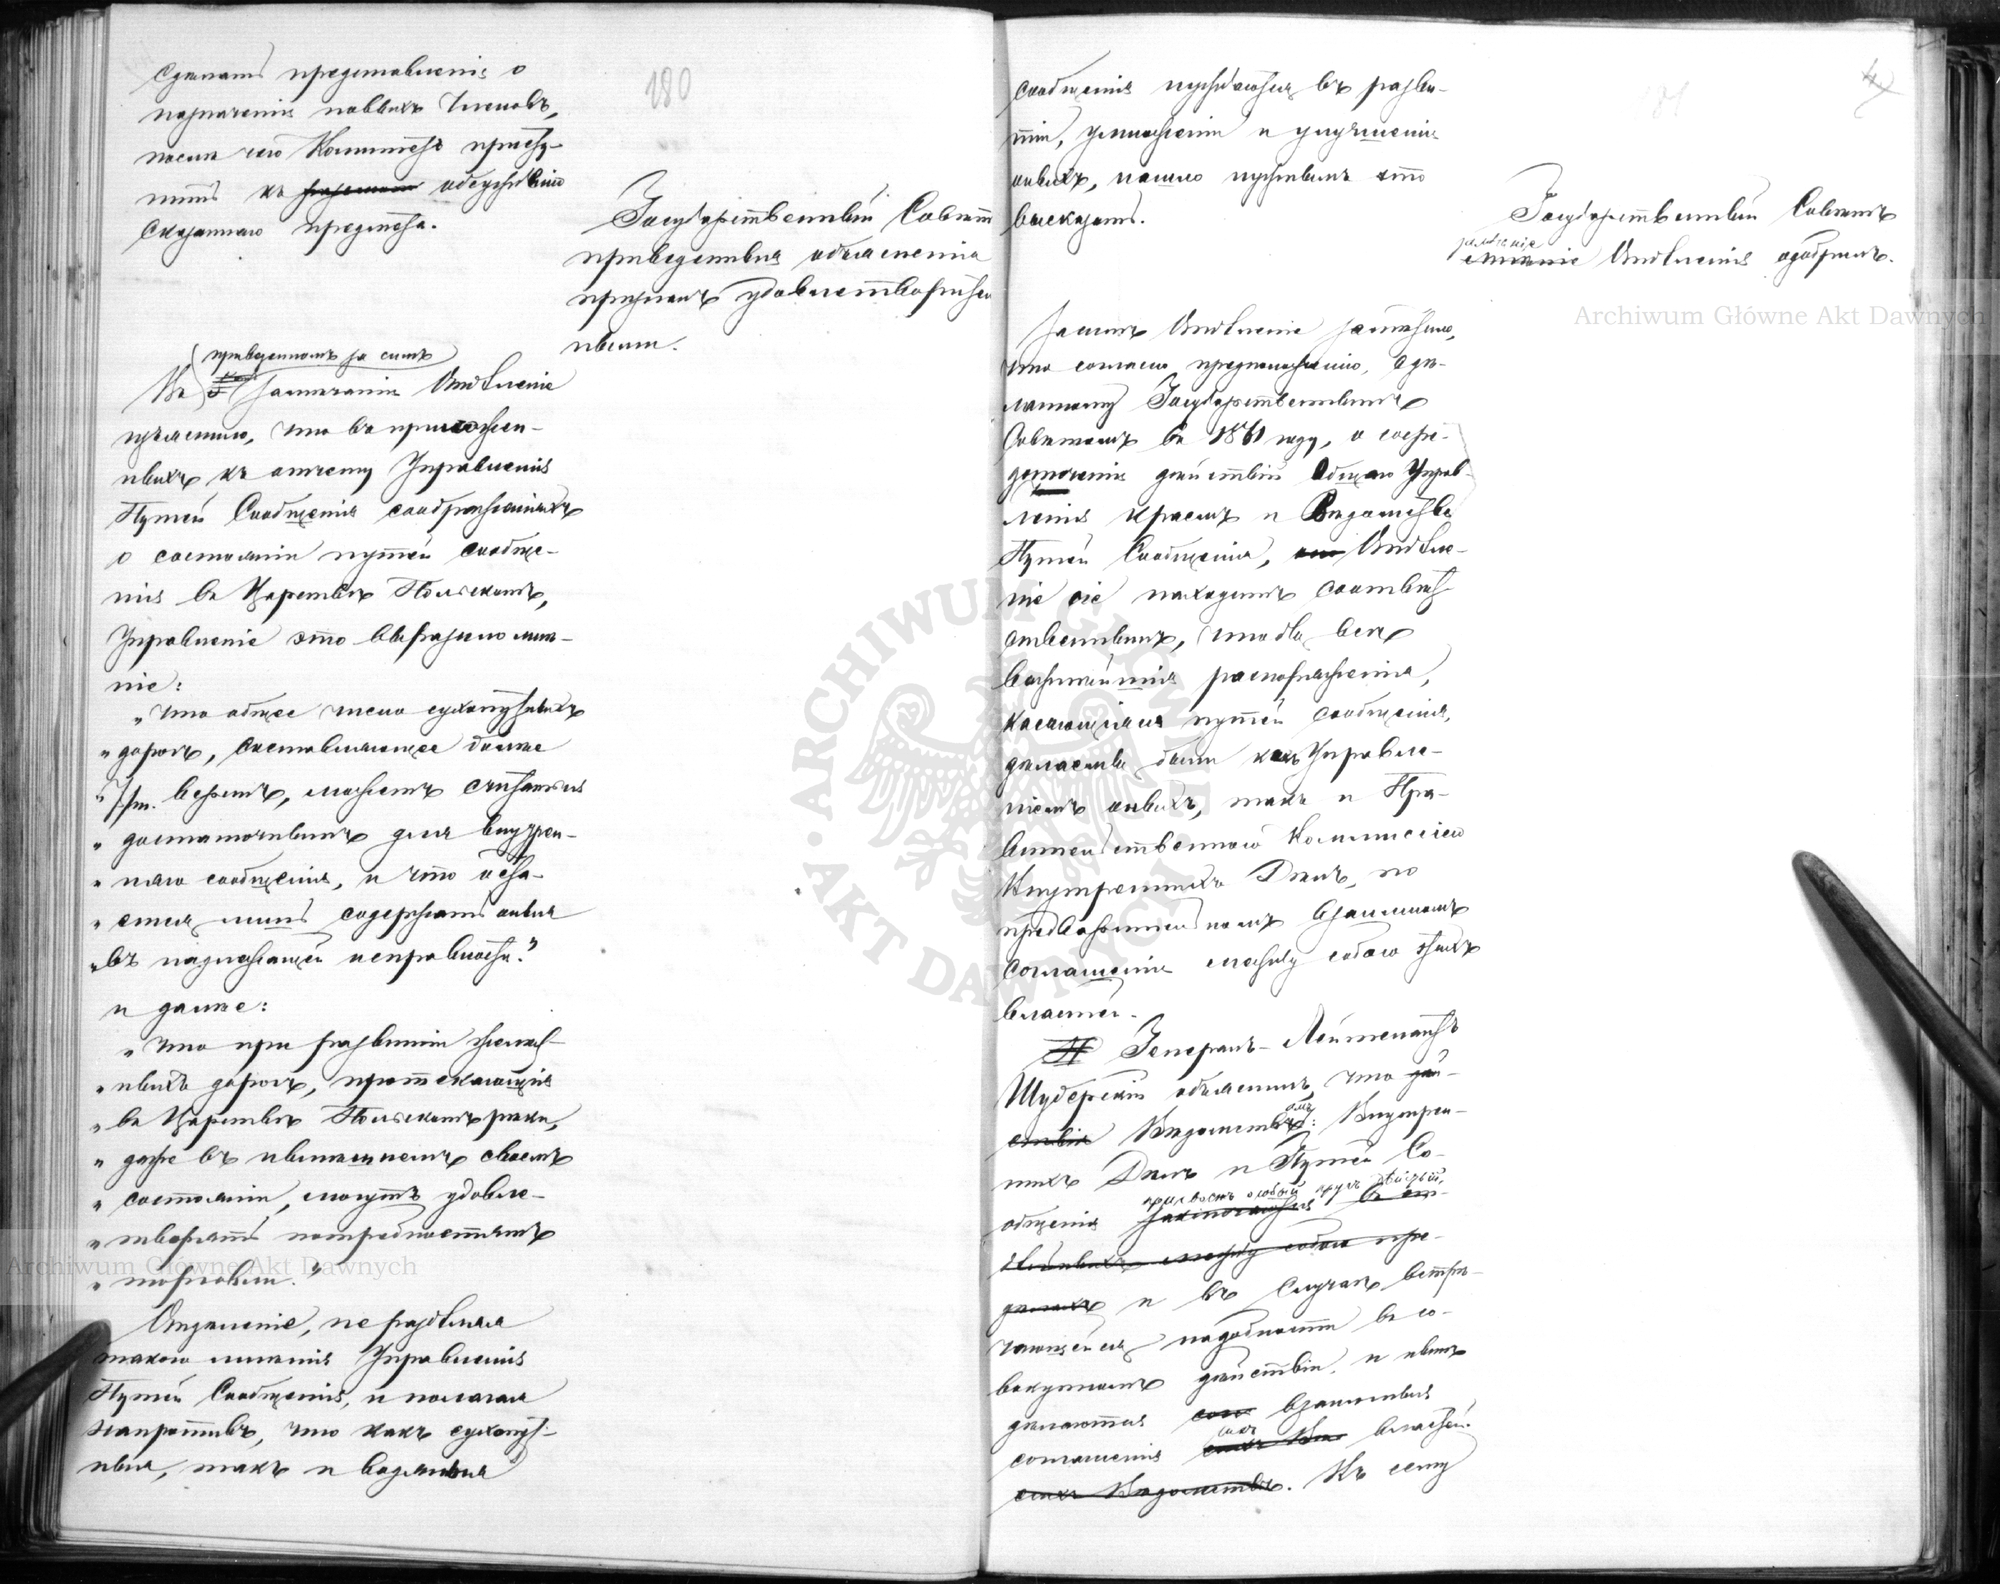 180
сдѣлать представленіе о
назначеніи новыхъ Членовъ,
послѣ чего Комитетъ присту-
питъ къ обсужденію
сказаннаго предмета.
Государственный Совѣтъ
приведенныя объясненія
призналъ удовлетворитель
ными.
приведенномъ за симъ
Въ замѣчаніи Отдѣленіе
изъяснило, что въ приложен-
ныхъ къ отчету Управленія
Путей Сообщенія соображеніяхъ
о состояніи путей сообще-
нія въ Царствѣ Польскомъ,
Управленіе это выразило мнѣ-
ніе:
„что общее число сухопутныхъ
„дорогъ, составляющее болѣе
„ верстъ, можетъ считаться
„достаточнымъ для внутрен-
„няго сообщенія, и что оста-
„ется лишь содержать оныя
„въ надлежащей исправности."
и далѣе:
„что при развитіи желѣз-
„ныхъ дорогъ, протекающія
„въ Царствѣ Польскомъ рѣки,
„даже въ нынѣшнемъ своемъ
„состояніи, могутъ удовле-
„творять потребностямъ
„торговли."
Отдѣленіе, не раздѣляя
такого мнѣнія Управленія
Путей Сообщенія, и полагая
напротивъ, что какъ сухопут-
ныя, такъ и водяныя
сообщенія нуждаются въ разви-
тіи, умноженіи и улучшеніи
оныхъ, нашло нужнымъ это
высказать.
Государственный Совѣтъ
замѣчаніе
мнѣніе Отдѣленія одобрилъ.
Засимъ Отдѣленіе замѣтило,
что согласно предположенію, сдѣ-
ланному Государственнымъ
Совѣтомъ въ 1861 году, о сосре-
доточеніи дѣйствій Общаго Управ-
ленія краемъ и Вѣдомства
Путей Сообщенія, Отдѣле-
ніе сіе находитъ соотвѣт-
ственнымъ, чтобы всѣ
важнѣйшія распоряженія,
касающіяся путей сообщенія,
дѣлаемы были какъ Управле-
ніемъ оныхъ, такъ и Пра-
вительственною Коммиссіею
Внутреннихъ Дѣлъ, по
предварительномъ взаимномъ
соглашеніи между собою этихъ
властей.
Генералъ-Лейтенантъ
Шуберскій объяснилъ, что дѣй-
ствія Вѣдомствъ: Внутрен-
нихъ Дѣлъ и Путей Со-
общенія
заключаются въ от-
дѣльныхъ между собою пре-
дѣлахъ и въ случаѣ встрѣ-
чающейся надобности въ со-
вокупномъ дѣйствіи, и нынѣ
дѣлаются взаимныя
соглашенія властей.
сихъ Вѣдомствъ. Къ сему
Archiwum Główne Akt Dawnych
Archiwum Główne Akt Dawnych
ARCHIWUM GŁÓWNE AKT DAWNYCH